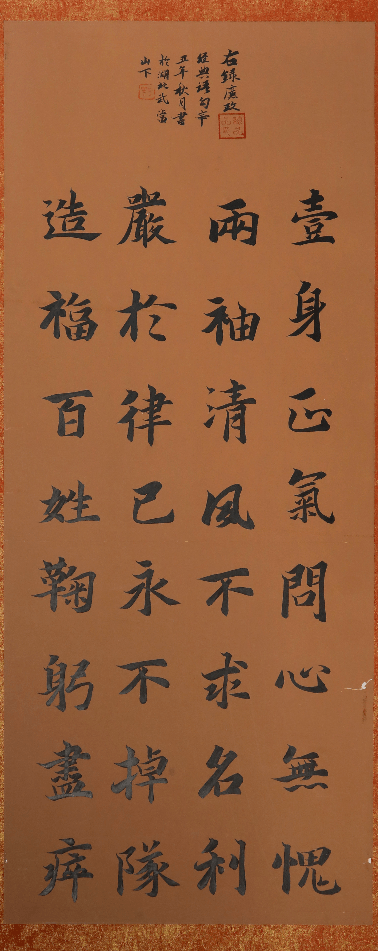 壹身正氣問心無愧
兩袖清風不求名利
嚴於律已永不掉隊
造福百姓鞠躬盡瘁
右錄廉政
經典語句辛
丑年秋月書
於湖北武當
山下